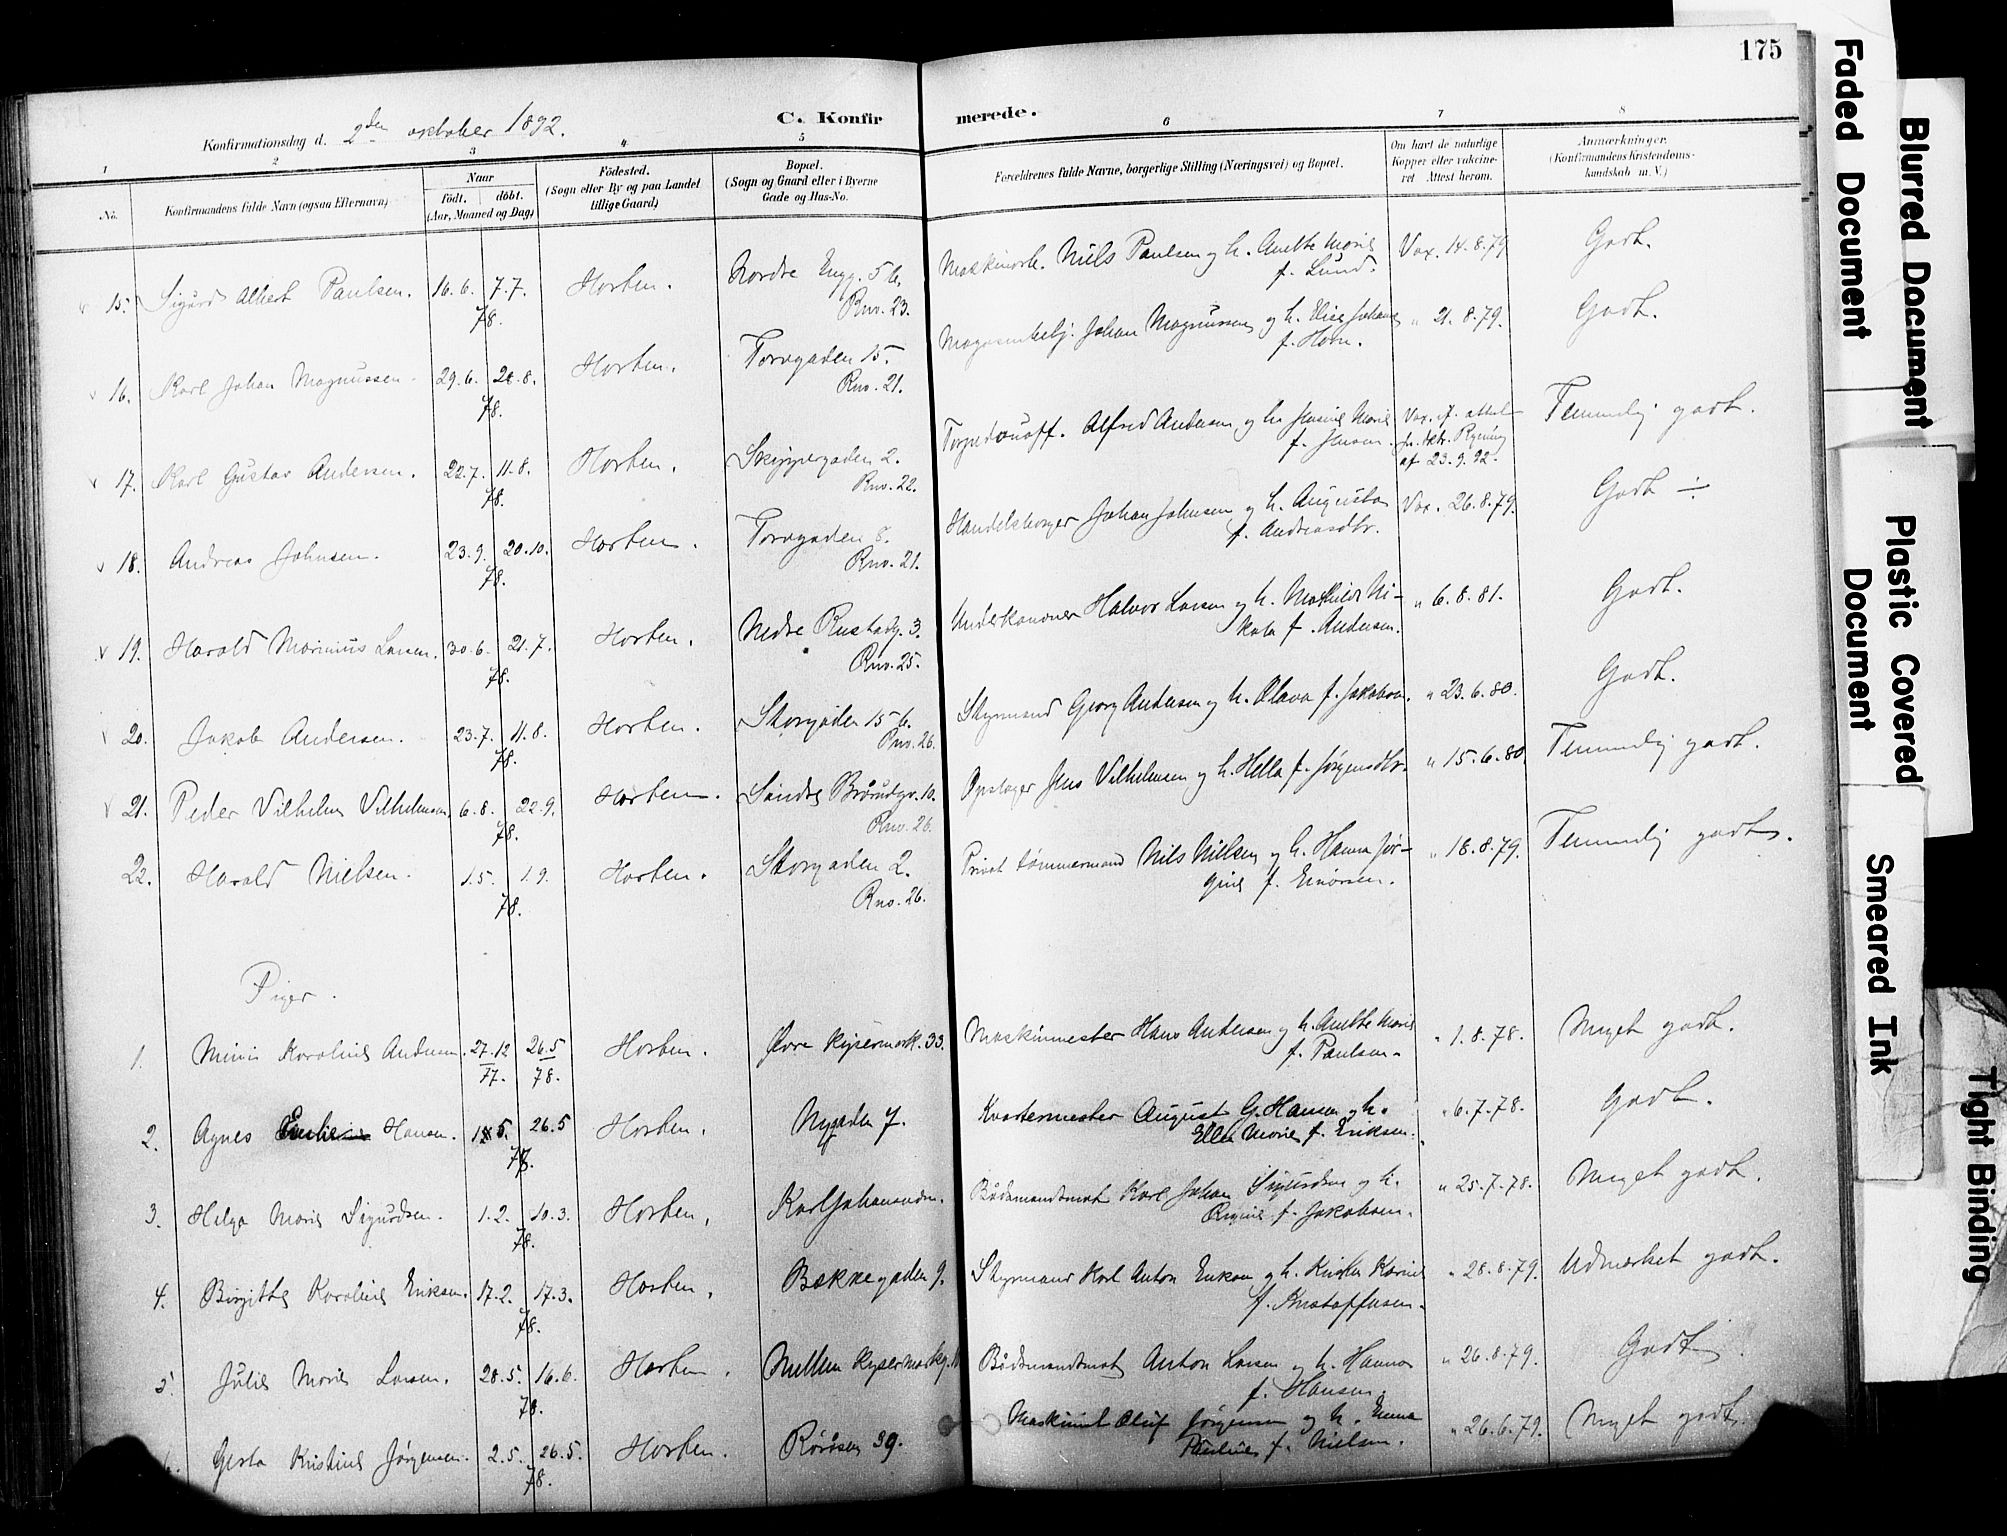 175
Konfirmationsdag d. 2den oktober 1892.
C. Konfirmerede.
1 2 3 4 5 6 7 8
No.
Konfirmandens fulde Navn (ogsaa Efternavn)
Naar
født. døbt.
(Aar, Maaned og Dag)
Fødested.
(Sogn eller By og paa Landet
tillige Gaard)
Bopæl.
(Sogn og Gaard eller i Byerne
Gade og Hus-No.
Forældrenes fulde Navne, borgerlige Stilling (Næringsvei) og Bopæl.
Om havt de naturlige
Kopper eller vakcine-
ret Attest herom.
Anmærkninger.
(Konfirmandens Kristendoms-
kundskab m. V.)
15. Sigurd Albert Paulsen. 16.6. 7.7. Horten. Nordre Engg. 5 b. Niels Paulsen og h. Anette Marie Vax. 14.8.79 Godt.
78. Rnv. 23. f. Lund.
16. Karl Johan Magnussen. 29.6. 28.8. Horten. Torvgaden 15. Johan Magnussen og h. Elise Johanne " 21.8.79. Godt.
78. Rnv. 21. f. Horn.
17. Karl Gustav Andersen. 22.7. 11.8. Horten. Skippergaden 2. Alfred Andersen og h. Marie Vax. Temmelig godt.
78. Rnv. 22. f. Jensen. af 23.9.92.
18. Andreas Johnsen. 23.9. 20.10. Horten. Torvgaden 8. Handelsborger Johan Johnsen og h. Augusta Vax. 26.8.79. Godt ÷
78. Rnv. 21. f. Andreasdtr.
19. Harald Marinius Larsen. 30.6. 21.7. Horten. Nedre Rustadg. 3. Underkanoner Halvor Larsen og h. Mathilde Ni- " 6.8.81. Godt.
78. Rnv. 25. f. Andersen.
20. Jakob Andersen. 23.7. 11.8. Horten. Storgaden 15 b. Styrmand Georg Andersen og h. Olava f. Jakobsen. " 23.6.80. Godt.
78. Rnv. 26.
21. Peder Vilhelm Vilhelmsen 6.8. 22.9. Horten. Søndre 10. Opslager Jens Vilhelmsen og h. Hella f. Jørgensdtr. " 15.6.80 Temmelig godt.
78. Rnv. 26.
22. Harald Nielsen. 1.5. 1.9. Horten. Storgaden 2. Privat tømmermand Nils Nielsen og h. Hanna Jør- " 18.8.79. Temmelig godt.
78. Rnv. 26. gine f. Einarsen.
Piger.
1. Minni Karoline Andersen. 27.12 26.5 Horten. Øvre Keisermark. 33. Maskinmester Hans Andersen og h. Anette Marie " 1.8.78. Meget godt.
77. 78. f. Paulsen.
2. Agnes Hansen. 5. 26.5 Horten. Nygaden 7. Kvartermester August G. Hansen og h. " 6.7.78. Godt.
78. Ellen Marie f. Eriksen.
3. Helga Marie Sigurdsen. 1.2. 10.3. Horten. Karljohansværn. Baadsmandsmat Karl Johan Sigurdsen og h. " 25.7.78. Meget godt.
78. Regine f. Jakobsen.
4. Birgitte Karoline Eriksen. 17.2. 17.3. Horten. Bekkegaden 9. Styrmand Karl Anton Eriksen og h. " 28.8.79. Udmerket godt.
78. f. Kristoffersen.
5. Julie Marie Larsen. 28.5. 16.6. Horten. Mellem Baadsmandsmat Anton Larsen og h. Hanna " 26.8.79. Godt.
78. f. Hansen.
Gerta Kristine Jørgensen. 2.5. 26.5. Horten. Røråsen 39. Maskinist Oluf Jørgensen og h. Emma " 26.6.79. Meget godt.
78. Pauline f. Nielsen.
Faded Document
Blurred Document
Plastic Covered
Document
Smeared Ink
Tight Binding